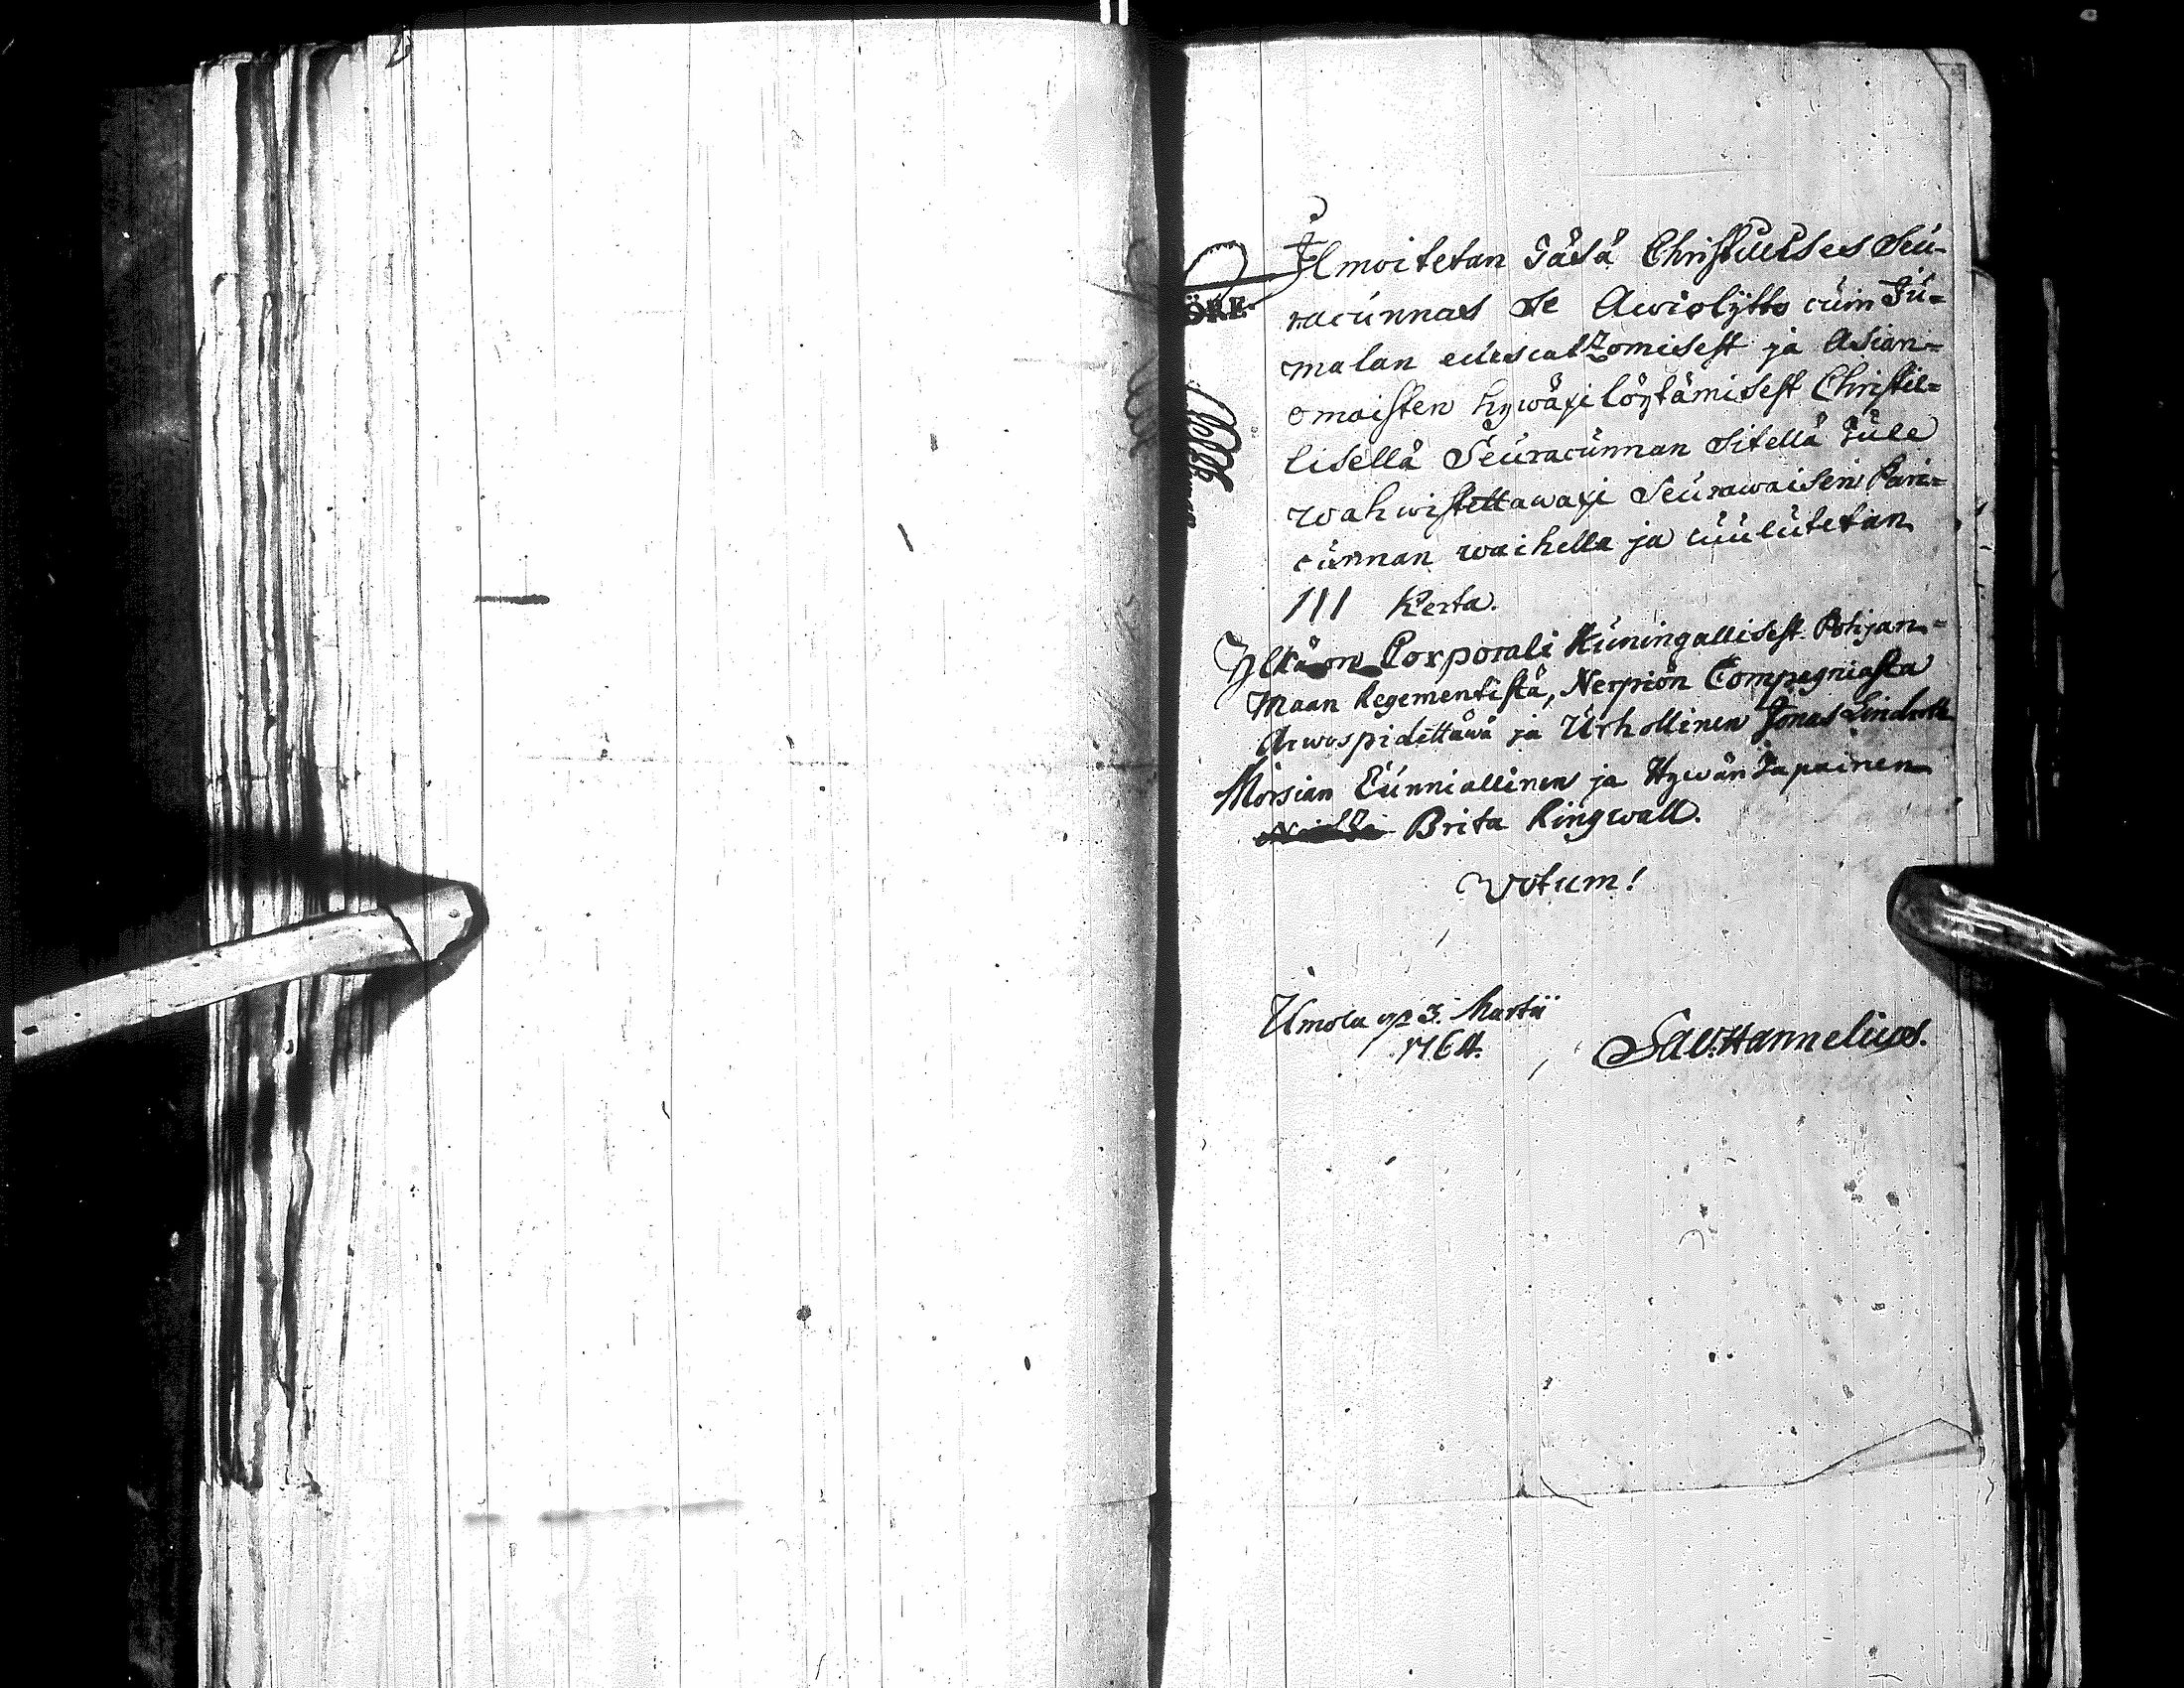 Ilmoitetan Täsä Christuxses Seu-
racunnas se Awioliitto cuin Ju-
malan edescatzomisest ja Asian-
omaisten hywäxi löytämisest Christil-
lisellä Seuracunnan Sitellä Tule
wahwistettawaxi Seurawaisen Pari-
cunnan waihella ja cuulutetan
III Kerta.
ÖRE.
Ylkäm Corporali Kuningallisest Pohjan-
Maan Regementistä, Nerpiön Compagniasta
Arwospidettäwä ja Urhollinen Jonas Lindrott
Morsian Cunniallinen ja Hywän Tapainen
Brita Ringwall.
Votum!
Umola 3. Martii
1764.
Sal. Hannelius.